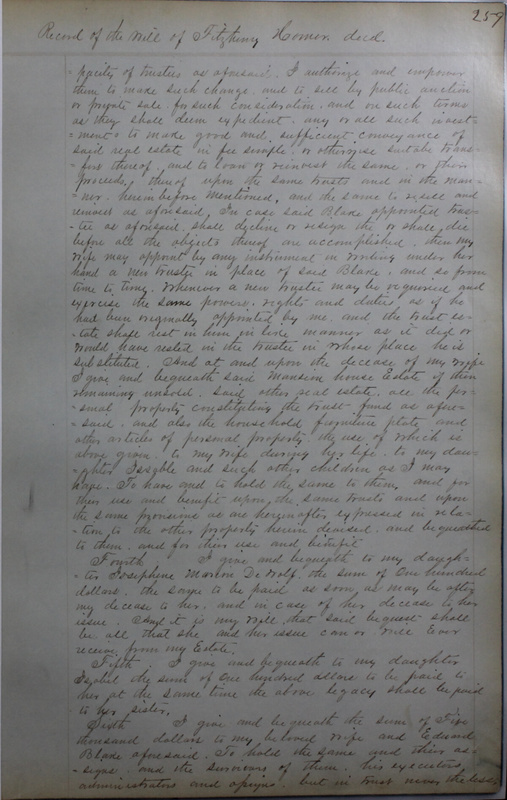 259
Record of the Will of Fitzhenry Homer decd.
=pacity of trustees as aforesaid. I authorize and empower
them to make such change, and to sell by public auction
or private sale for such consideration and on such terms
as they shall deem expedient any or all such invest-
=ments to make good and sufficient conveyance of
said real estate in fee simple, or otherwise suitable trans-
=fer thereof, and to loan or reinvest the same, or their
proceeds, thereof upon the same trusts and in the man-
=ner hereinbefore mentioned, and the same to resell and
reinvest as aforesaid, In case said Blake appointed trus-
=tee as aforesaid, shall decline or resign the or shall die
before all the objects thereof are accomplished, then my
wife may appoint by any instrument in writing under her
hand a new trustee in place of said Blake, and so from
time to time. Whenever a new trustee may be required and
exercise the same powers, rights and duties as if he
had been originally appointed by me. and the trust es-
=tate shall vest in him in like manner as it did or
would have vested in the trustee in whose place he is
substituted. And at and upon the decease of my wife
I give and bequeath said Mansion house Estate if then
remaining unsold, said other real estate, all the per-
=sonal property constituting the trust fund as afore-
=said. and also the household furniture plate and
other articles of personal property, the use of which is
above given to my wife during her life, to my dau-
=ghter Isabel and such other children as I may
have. To have and to hold the same to them, and for
their use and benefit upon the same trusts and upon
the same provisions as are hereinafter expressed in rela-
=tion to the other property herein devised and bequeathed
to them, and for their use and benefit
Fourth I give and bequeath to my daugh-
=ter Josephene Marion De Wolf, the sum of One hundred
dollars. the same to be paid as soon as may be after
my decease to her, and in case of her decease to her
issue. And it is my will, that said bequest shall
be all that she and her issue can or will Ever
receive from my Estate.
Fifth. I give and bequeath to my daughter
Isabel the sum of One hundred dollars to be paid to
her at the same time the above legacy shall be paid
to her sister.
Sixth I give and bequeath the sum of Five
thousand dollars to my beloved wife and Edward
Blake aforesaid. To hold the same and their as-
=signs. and the survivors of them. his executors
administrators and assigns. but in trust nevertheless